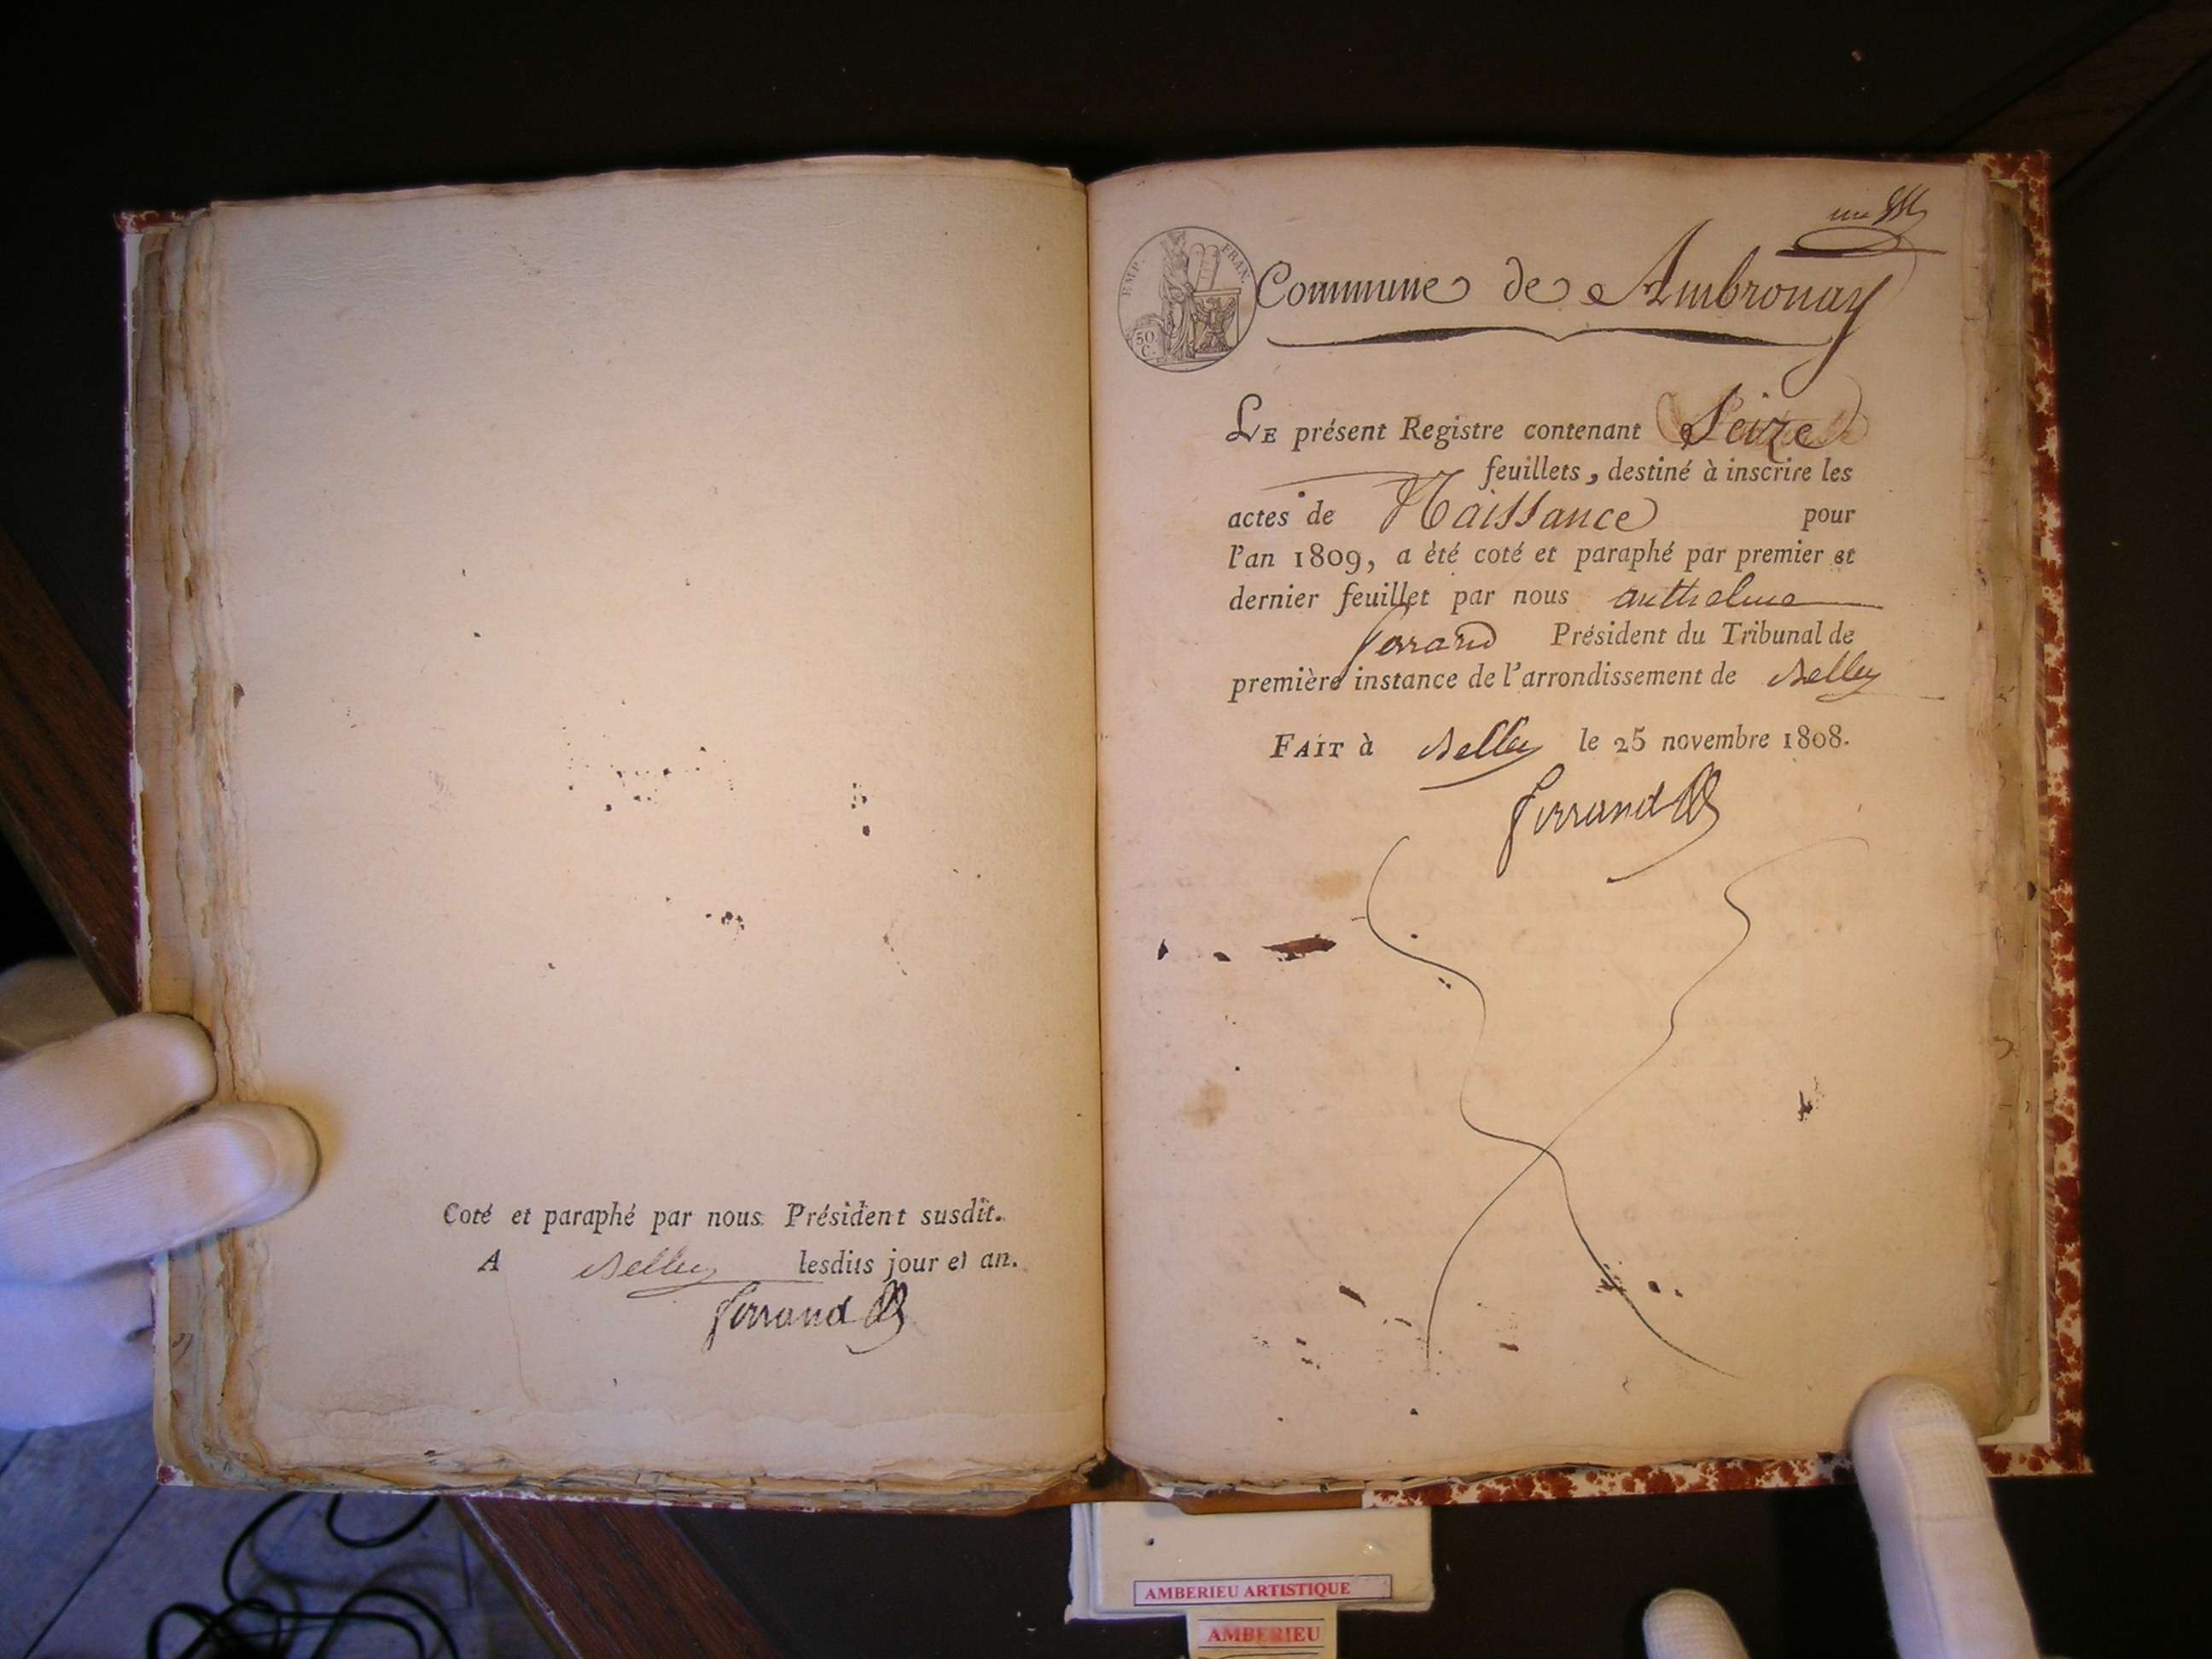 Coté et paraphé par nous Président susdit.
A Belley lesdits jour et an.
ferrand
un
EMP. FRAN.
50
C.
Commune de Ambronay
LE présent Registre contenant Seize
feuillets, destiné à inscrire les
actes de Naissance pour
l'an 1809, a été coté et paraphé par premier et
dernier feuillet par nous anthelme
ferrand Président du Tribunal de
première instance de l'arrondissement de Belley
FAIT à Belley le 25 novembre 1808.
ferrand
AMBERIEU ARTISTIQUE
AMBERIEU